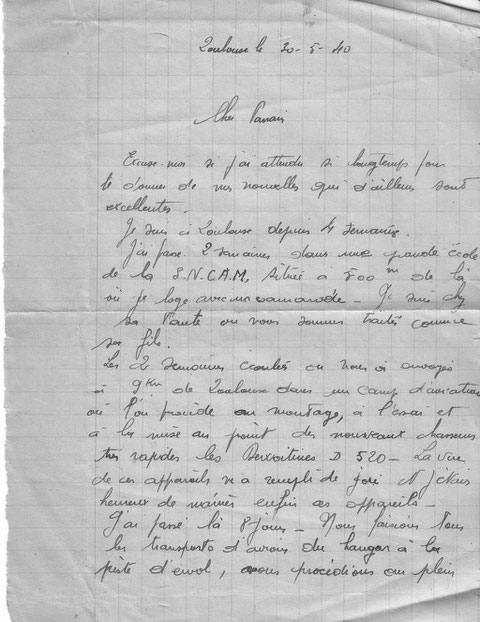 Toulouse le 30-5-40
Cher Parrain
Excuse-moi si j'ai attendu si longtemps pour
te donner de mes nouvelles qui d'ailleurs sont
excellentes.
Je suis ici à Toulouse depuis 4 semaines.
J'ai passé 2 semaines dans une grande école
de la S.N.C.A.M, située à 500 m de là
où je loge avec un camarade - Je suis chez
sa tante où nous sommes traités comme
ses fils.
Les 2 semaines écoulées on nous a envoyés
à 9 Km de Toulouse dans un camp d'aviation
où l'on procède au montage, à l'essai et
à la mise au point des nouveaux chasseurs
très rapides les Dewoitines D 520 - La vue
de ces appareils m'a rempli de joie et j'étais
heureux de manier enfin ces appareils -
J'ai passé là 8 jours - Nous faisions tous
les transports d'avions du hangar à la
piste d'envol, nous procédions au plein